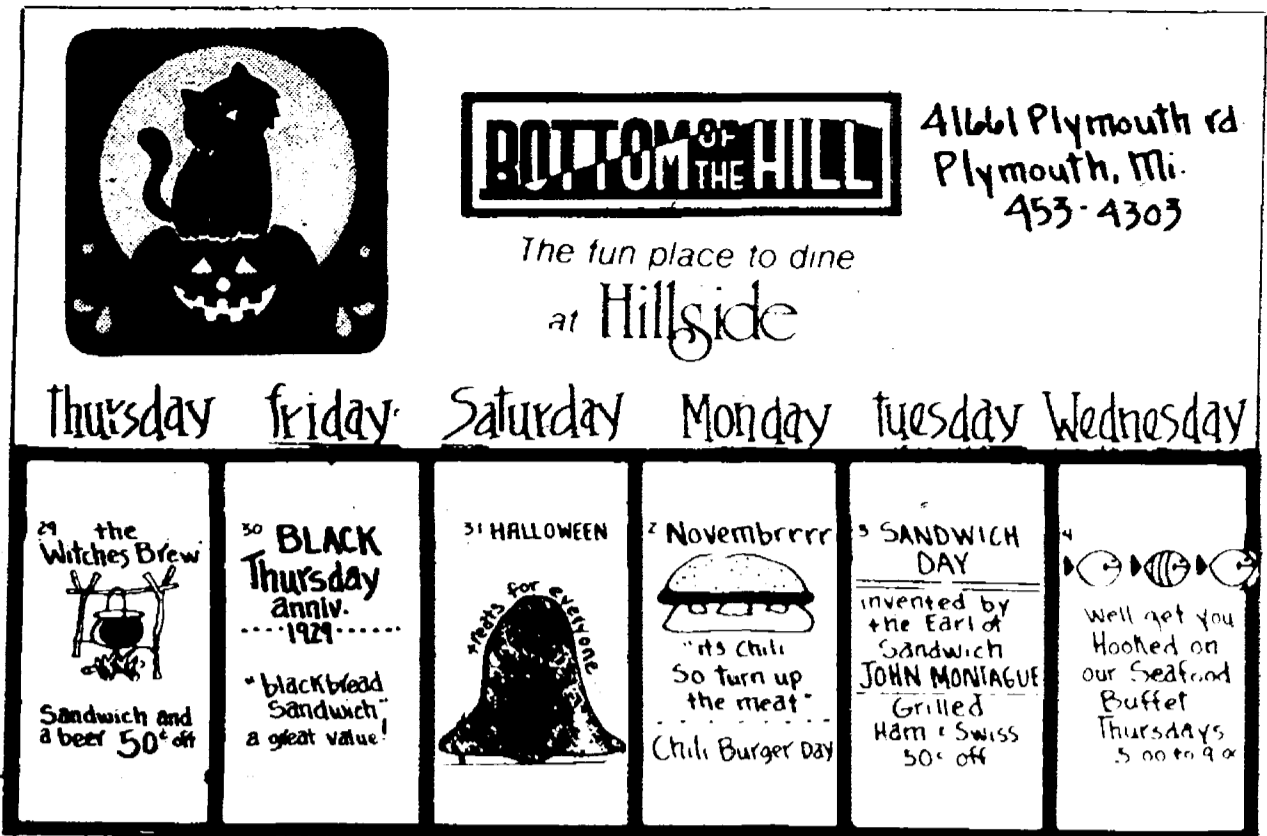 BOTTOM OF THE HILL
41661 Plymouth rd
Plymouth, Mi.
453-4303
The fun place to dine
at Hillside
Thursday friday Saturday Monday tuesday Wednesday
29 the
Witches Brew
Sandwich and
a beer 50¢ off
30 BLACK
Thursday
anniv.
1929
"blackbread
Sandwich"
a great value!
31 HALLOWEEN
treats for everyone
2 Novembrrrr
"its Chili
So turn up
the meat"
Chili Burger Day
3 SANDWICH
DAY
invented by
the Earl of
Sandwich
JOHN MONTAGUE
Grilled
Ham & Swiss
50¢ off
4
Well get you
Hooked on
our Seafood
Buffet
Thursdays
5 00 to 9 00